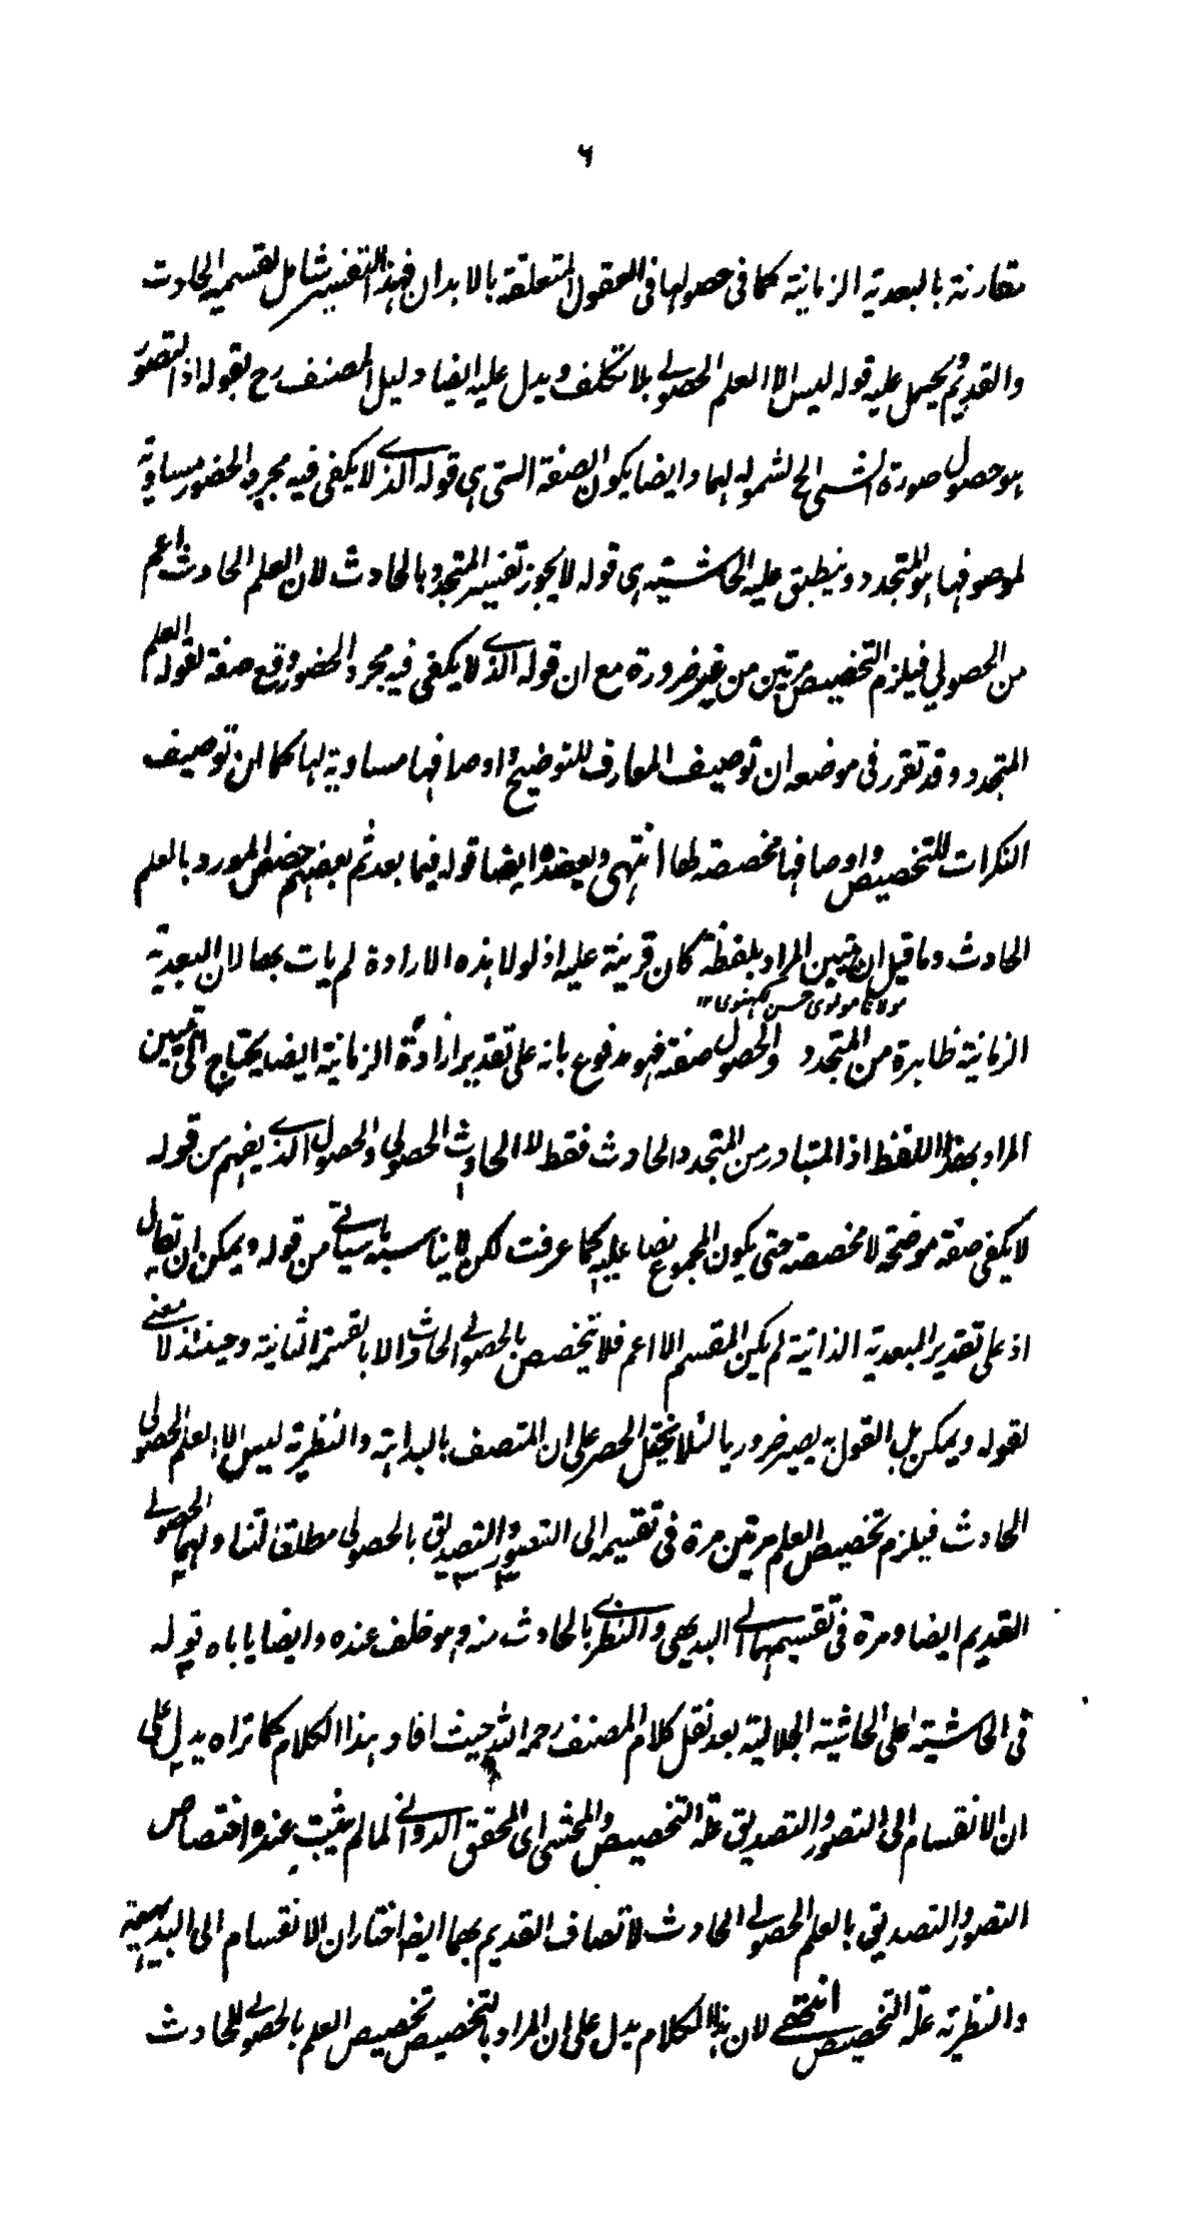 ٦
مقارنة بالبعدية الزمانية كما فى حصولها فى العقول المتعلقة بالابدان فهذا التفسير شامل لقسميه الحادث
والقديم ويحمل عليه قوله ليس الا العلم الحصولى بلا تكلف ويدل عليه ايضا دليل المصنف رح بقوله اذ التصور
هو حصول صورة الشئ الخ لشموله لهما وايضا يكون الصفة التى هى قوله الذى لا يكفى فيه مجرد الحضور مساوية
لموصوفها هو المتجدد وينطبق عليه الحاشية هى قوله لا يجوز تفسير المتجدد بالحادث لان العلم الحادث اعم
من الحصولي فيلزم التخصيص مرتين من غير ضرورة مع ان قوله الذى لا يكفى فيه مجرد الحضور وقع صفة لقوله العلم
المتجدد وقد تقرر فى موضعه ان توصيف المعارف للتوضيح واوصافها مساوية لها كما ان توصيف
النكرات للتخصيص واوصافها مخصصة لها انتهى ويعضده ايضا قوله فيما بعد ثم بعضهم خصص المورد بالعلم
الحادث وما قيل ان تبيين المراد بلفظة كان قرينة عليه اذ لولا هذه الارادة لم يات بها لان البعدية
مولانا مولوى حسن لكهنوى ١٢
الزمانية ظاهرة من المتجدد والحصول صفة فهو مدفوع بانه على تقدير ارادة الزمانية ايضا يحتاج الى تبيين
المراد بهذا اللفظ اذ المتبادر من المتجدد الحادث فقط لا الحادث الحصولي والحصول الذى يفهم من قوله
لا يكفى صفة موضحة لا مخصصة حتى يكون المجموع نصا عليه كما عرفت لكن لا يناسبه ما سياتى من قوله ويمكن ان يقال
اذ على تقدير البعدية الذاتية لم يكن المقسم الا اعم فلا يخصص بالحصولى الحادث الا بالقسمة الثانية وحينئذ لا معنى
لقوله ويمكن بل القول به يصير ضروريا لئلا يختل الحصر على ان المتصف بالبداهة والنظرية ليس الا العلم الحصولى
الحادث فيلزم تخصيص العلم مرتين مرة فى تقسيمه الى التصور والتصديق بالحصولى مطلقا لتناولهما الحصولى
القديم ايضا ومرة فى تقسيمهما الى البديهى والنظرى بالحادث منه وهو خلف عنده وايضا ياباه قوله
فى الحاشية على الحاشية الجلالية بعد نقل كلام المصنف رحمه الله حيث افاد هذا الكلام كما تراه يدل على
ان الانقسام الى التصور والتصديق علة التخصيص والمحشى اى المحقق الدوانى لما لم يثبت عنده اختصاص
التصور والتصديق بالعلم الحصولى الحادث لاتصاف القديم بهما ايضا اختار ان الانقسام الى البديهية
والنظرية علة التخصيص انتهى لان هذا الكلام يدل على ان المراد بالتخصيص تخصيص العلم بالحصولى للحادث